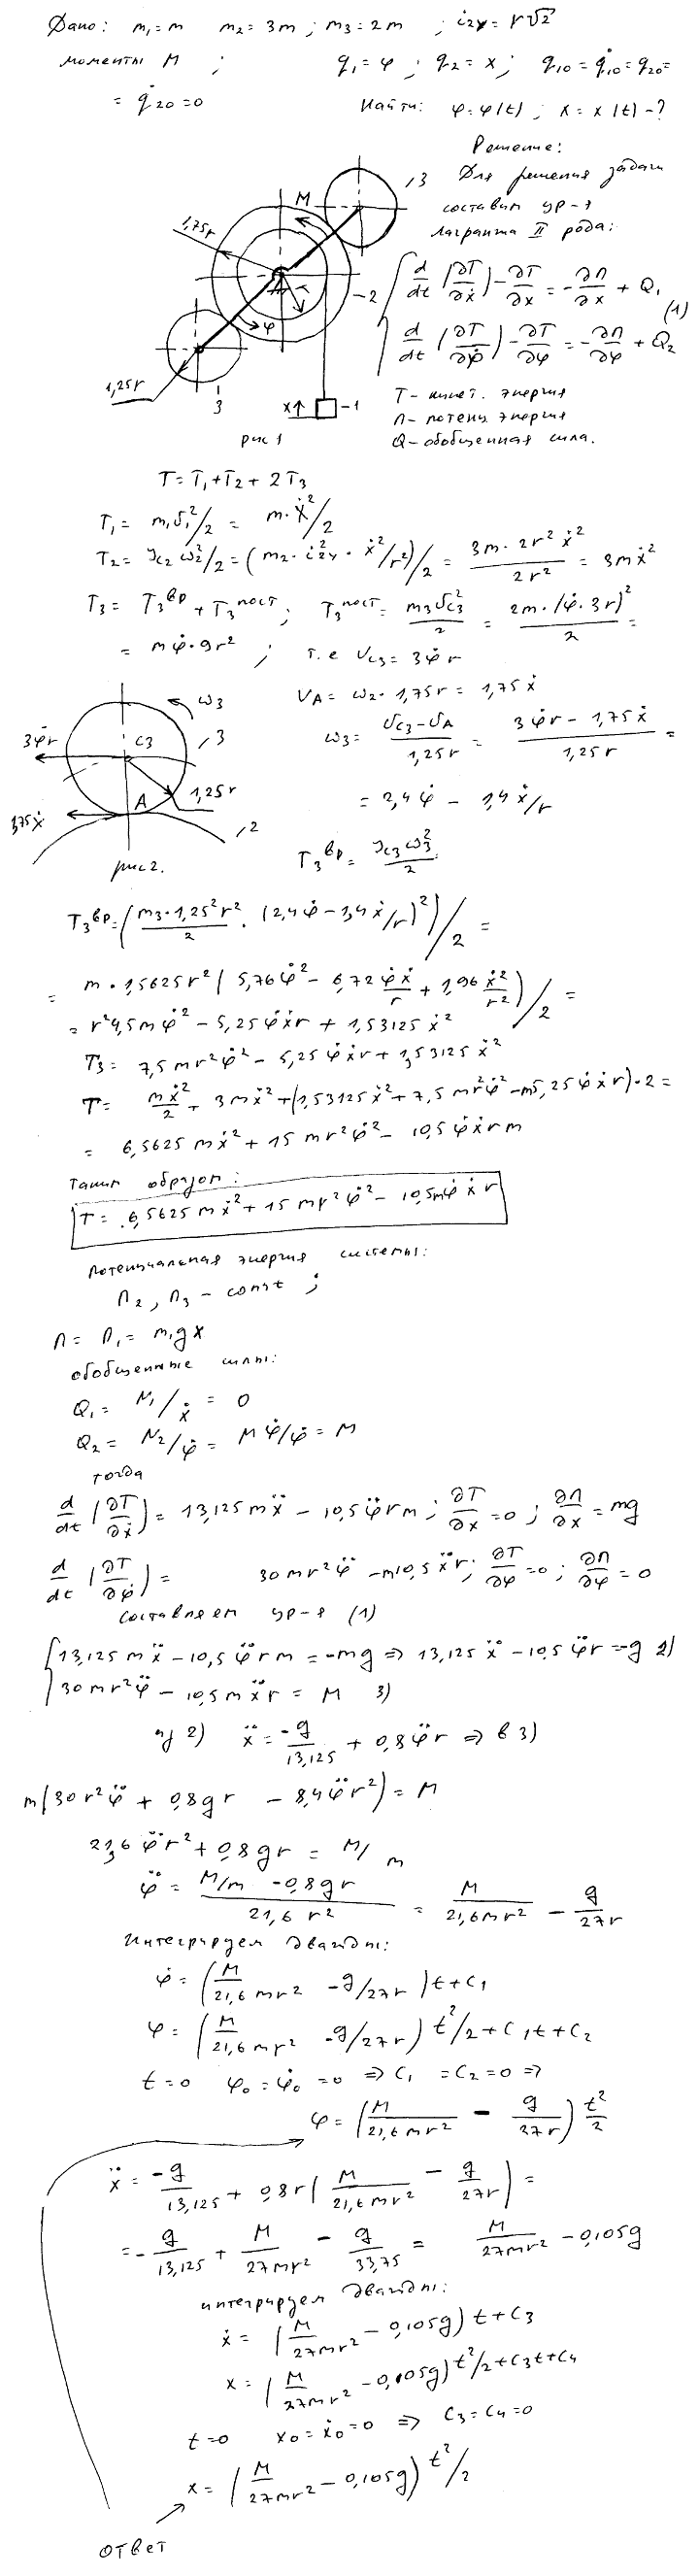 Дано: m₁ = m  m₂ = 3m ; m₃ = 2m ; i₂ₓ = r√2
моменты M ;  q₁ = φ ; q₂ = x ; q₁₀ = q̇₁₀ = q₂₀ =
= q̇₂₀ = 0  Найти: φ = φ(t) ; x = x(t) - ?
Решение:
Для решения задачи
составим ур-я
лагранжа II рода:
d/dt (∂T/∂ẋ) - ∂T/∂x = -∂П/∂x + Q₁
(1)
d/dt (∂T/∂φ̇) - ∂T/∂φ = -∂П/∂φ + Q₂
T - кинет. энергия
П - потенц энергия
Q - обобщенная сила.
M
3
1,75r
2
A
r
φ
1,25r
3
x↑
-1
рис 1
T = T₁ + T₂ + 2T₃
T₁ = m₁υ₁²/2 = m·ẋ²/2
T₂ = Jc₂ ω₂²/2 = (m₂·i₂ₓ²·ẋ²/r²)/2 = 3m·2r²ẋ²/2r² = 3mẋ²
T₃ = T₃ᵇᵖ + T₃ᵖᵒᶜᵀ ; T₃ᵖᵒᶜᵀ = m₃υc₃²/2 = 2m·(φ̇·3r)²/2 =
= mφ̇·9r² ; т.е υc₃ = 3φ̇r
υA = ω₂·1,75r = 1,75ẋ
ω₃ = (υc₃ - υA)/1,25r = (3φ̇r - 1,75ẋ)/1,25r =
= 2,4φ̇ - 1,4ẋ/r
T₃ᵇᵖ = Jc₃ω₃²/2
ω₃
3φ̇r
C3
3
1,25r
A
1,75ẋ
2
рис 2.
T₃ᵇᵖ = (m₃·1,25²r²/2 · (2,4φ̇ - 1,4ẋ/r)²)/2 =
= m·1,5625r²(5,76φ̇² - 6,72φ̇ẋ/r + 1,96ẋ²/r²)/2 =
= r²4,5mφ̇² - 5,25φ̇ẋr + 1,53125ẋ²
T₃ = 7,5mr²φ̇² - 5,25φ̇ẋr + 1,53125ẋ²
T = mẋ²/2 + 3mẋ² + (1,53125ẋ² + 7,5mr²φ̇² - m5,25φ̇ẋr)·2 =
= 6,5625mẋ² + 15mr²φ̇² - 10,5φ̇ẋrm
Таким образом:
T = 6,5625mẋ² + 15mr²φ̇² - 10,5mφ̇ẋr
Потенциальная энергия системы:
П₂, П₃ - const ;
П = П₁ = m₁gx
обобщенные силы:
Q₁ = N₁/ẋ = 0
Q₂ = N₂/φ̇ = Mφ̇/φ̇ = M
тогда
d/dt (∂T/∂ẋ) = 13,125mẍ - 10,5φ̈rm ; ∂T/∂x = 0 ; ∂П/∂x = mg
d/dt (∂T/∂φ̇) = 30mr²φ̈ - m10,5ẍr ; ∂T/∂φ = 0 ; ∂П/∂φ = 0
составляем ур-я (1)
13,125mẍ - 10,5φ̈rm = -mg ⇒ 13,125ẍ - 10,5φ̈r = -g 2)
30mr²φ̈ - 10,5mẍr = M 3)
из 2) ẍ = -g/13,125 + 0,8φ̈r ⇒ в 3)
m(30r²φ̈ + 0,8gr - 8,4φ̈r²) = M
21,6φ̈r² + 0,8gr = M/m
φ̈ = (M/m - 0,8gr)/21,6r² = M/21,6mr² - g/27r
интегрируем дважды:
φ̇ = (M/21,6mr² - g/27r)t + C₁
φ = (M/21,6mr² - g/27r)t²/2 + C₁t + C₂
t = 0  φ₀ = φ̇₀ = 0 ⇒ C₁ = C₂ = 0 ⇒
φ = (M/21,6mr² - g/27r) t²/2
ẍ = -g/13,125 + 0,8r(M/21,6mr² - g/27r) =
= -g/13,125 + M/27mr² - g/33,75 = M/27mr² - 0,105g
интегрируем дважды:
ẋ = (M/27mr² - 0,105g)t + C₃
x = (M/27mr² - 0,105g)t²/2 + C₃t + C₄
t = 0  x₀ = ẋ₀ = 0 ⇒ C₃ = C₄ = 0
x = (M/27mr² - 0,105g)t²/2
ответ